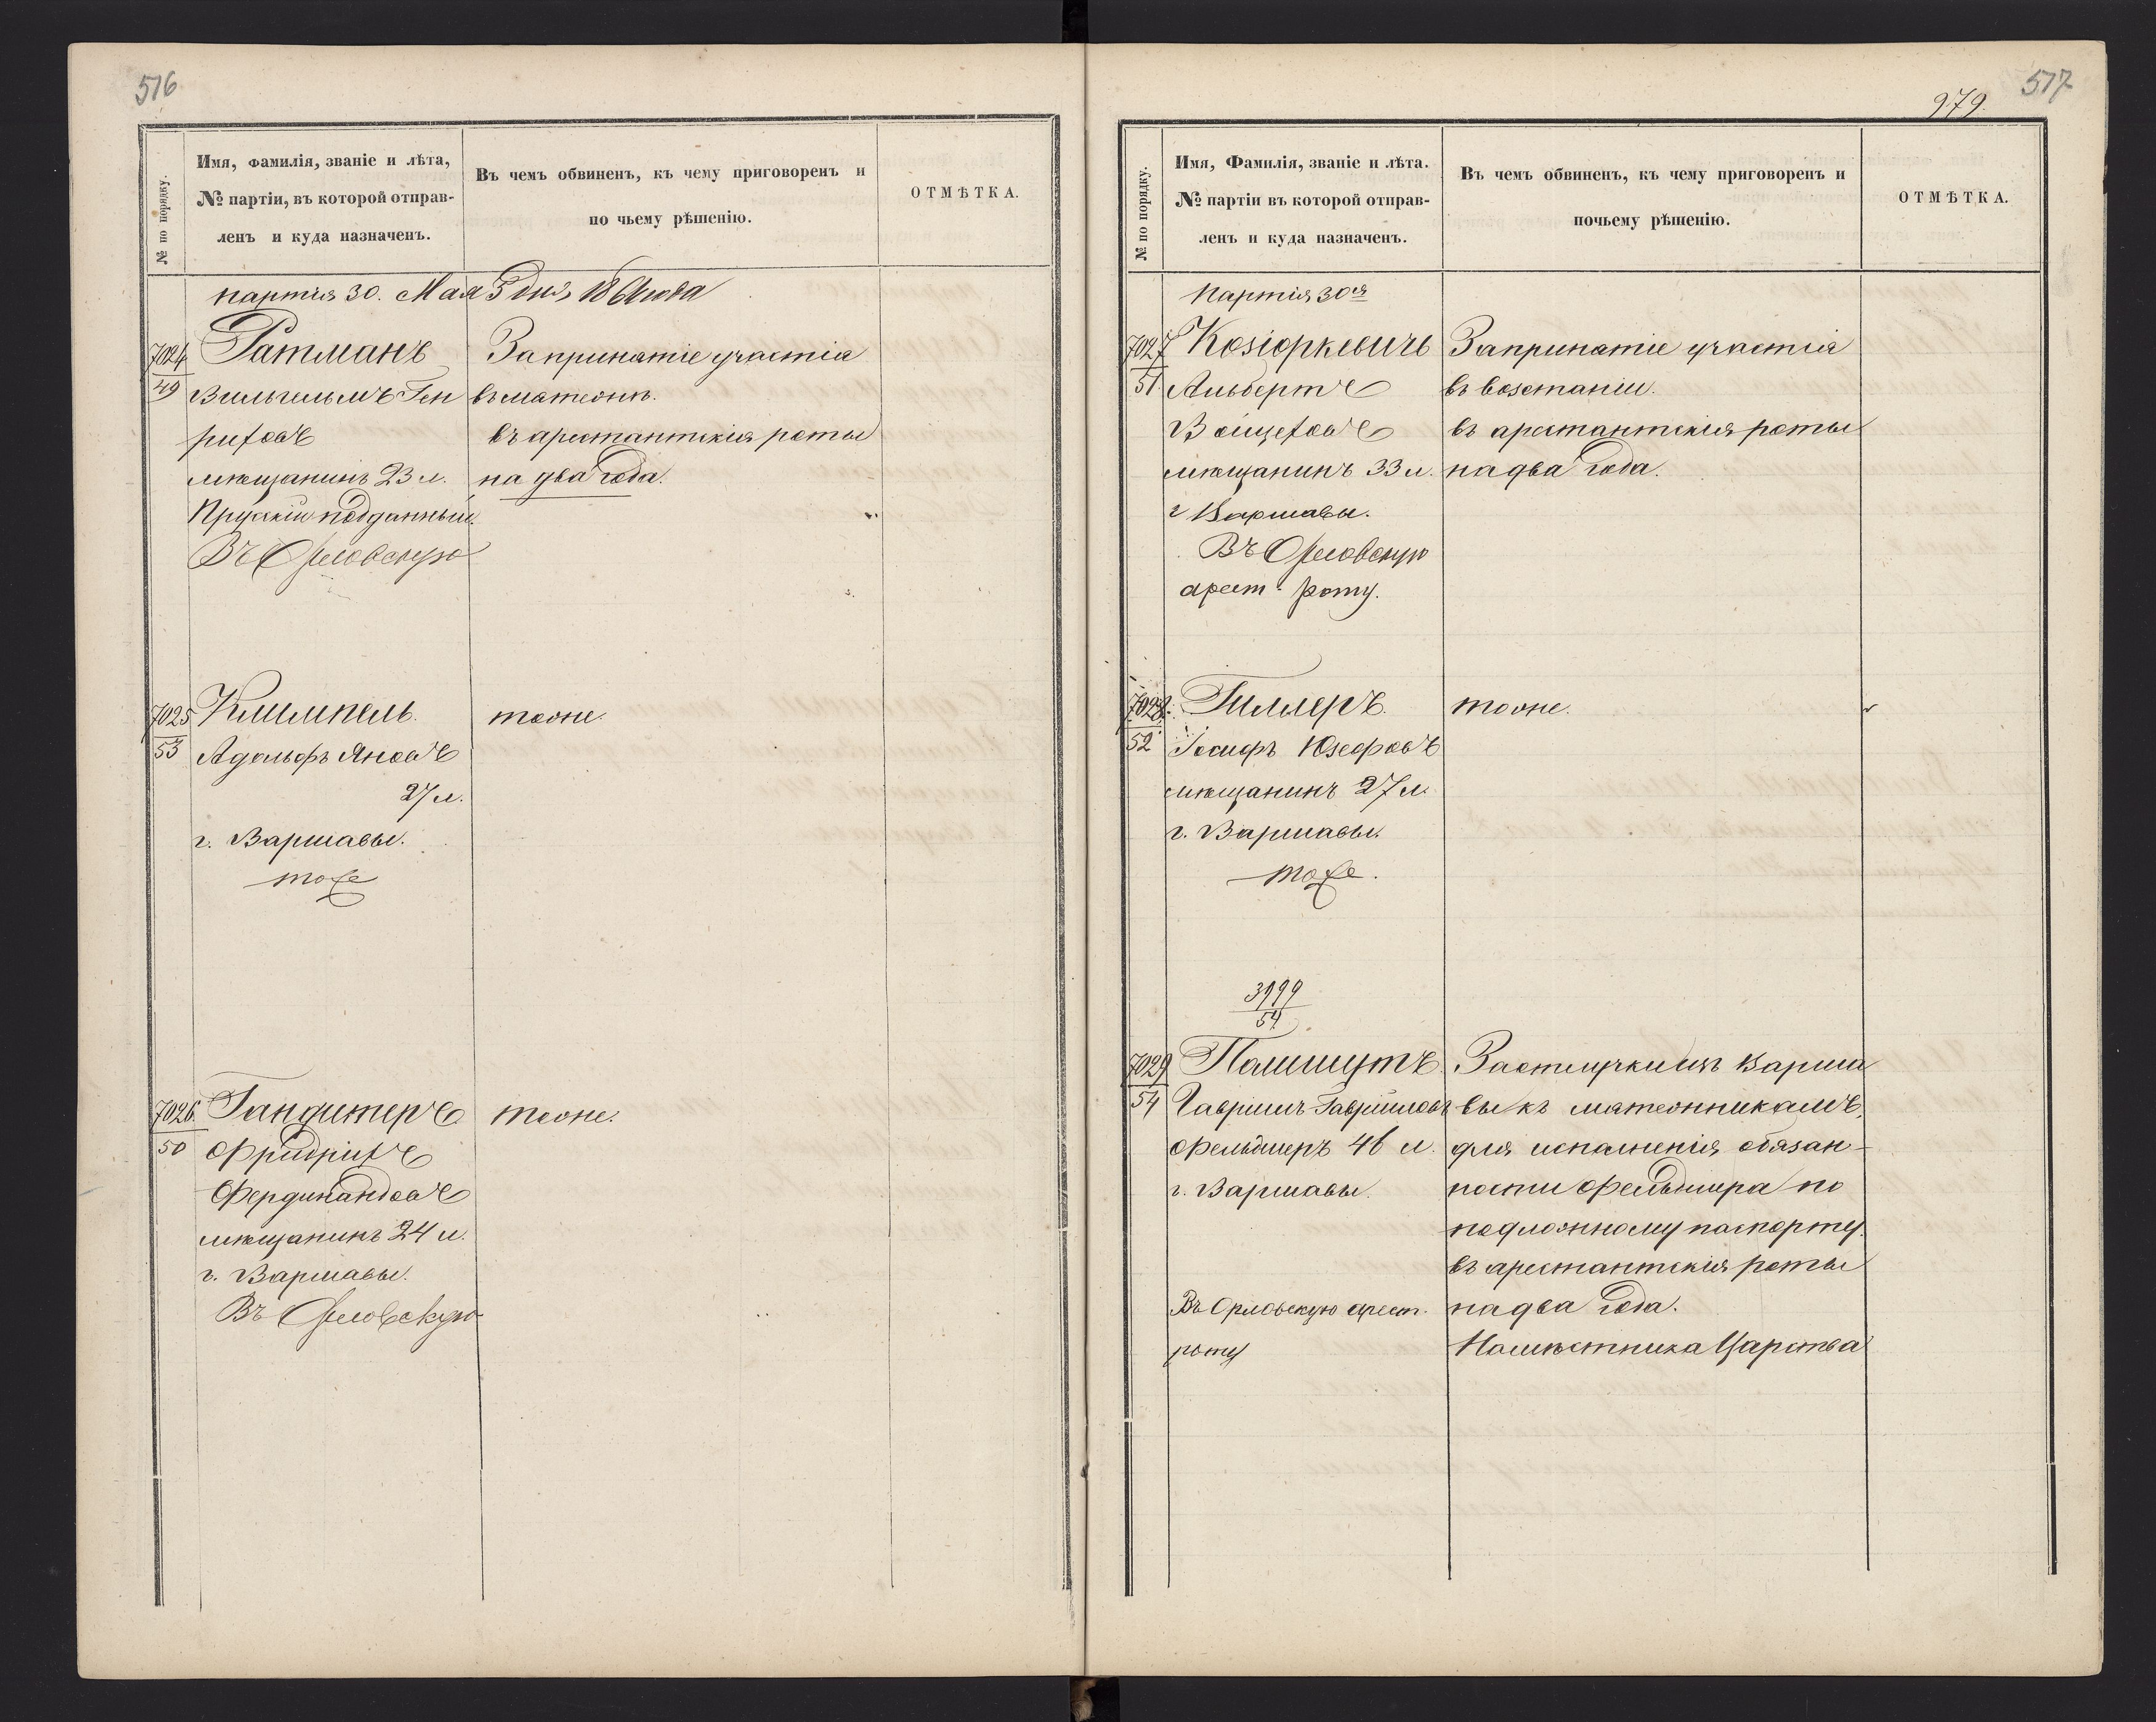 516
№ по порядку.
Имя, фамилія, званіе и лѣта,
№ партіи, въ которой отправ-
ленъ и куда назначенъ.
Въ чемъ обвиненъ, къ чему приговоренъ и
по чьему рѣшенію.
ОТМѢТКА.
партия 30. Мая 5 дня 1864 года
7024
49
Ратманъ
Вильгельмъ Ген
риховъ
мѣщанинъ 23 л.
Прускій подданный.
Въ Орловскую
За принятіе участія
въ мятежѣ.
въ арестантскія роты
на два года.
7025
53
Климпель.
Адольфъ Яновъ
27 л.
г. Варшавы.
тоже
тоже.
7026.
50
Гандитеръ
Фридрихъ
Фердинандовъ
мѣщанинъ 24 л.
г. Варшавы.
Въ Орловскую
тоже.
517
979.
№ по порядку.
Имя, Фамилія, званіе и лѣта.
№ партіи въ которой отправ-
ленъ и куда назначенъ.
Въ чемъ обвиненъ, къ чему приговоренъ и
почьему рѣшенію.
ОТМѢТКА.
Партія 30ая
7027
51
Козіоркевичъ
Альбертъ
Войцеховъ
мѣщанинъ 33 л.
г Варшавы.
Въ Орловскую
арест. роту.
За принятіе участія
въ возстаніи.
въ арестантскія роты
на два года.
7028.
52
Гиллеръ.
Іосифъ Юзефовъ
мѣщанинъ 27 л.
г. Варшавы.
тоже.
тоже.
3999
54
7029
54
Пашшутъ
Гавріилъ Гавріиловъ
Фельдшеръ 46 л.
г. Варшавы.
Въ Орловскую арест.
роту
За отлучку изъ Варша
вы къ мятежникамъ,
для исполненія обязан-
ности Фельдшера по
подложному паспорту.
въ арестантскія роты
на два года.
Намѣстника Царства